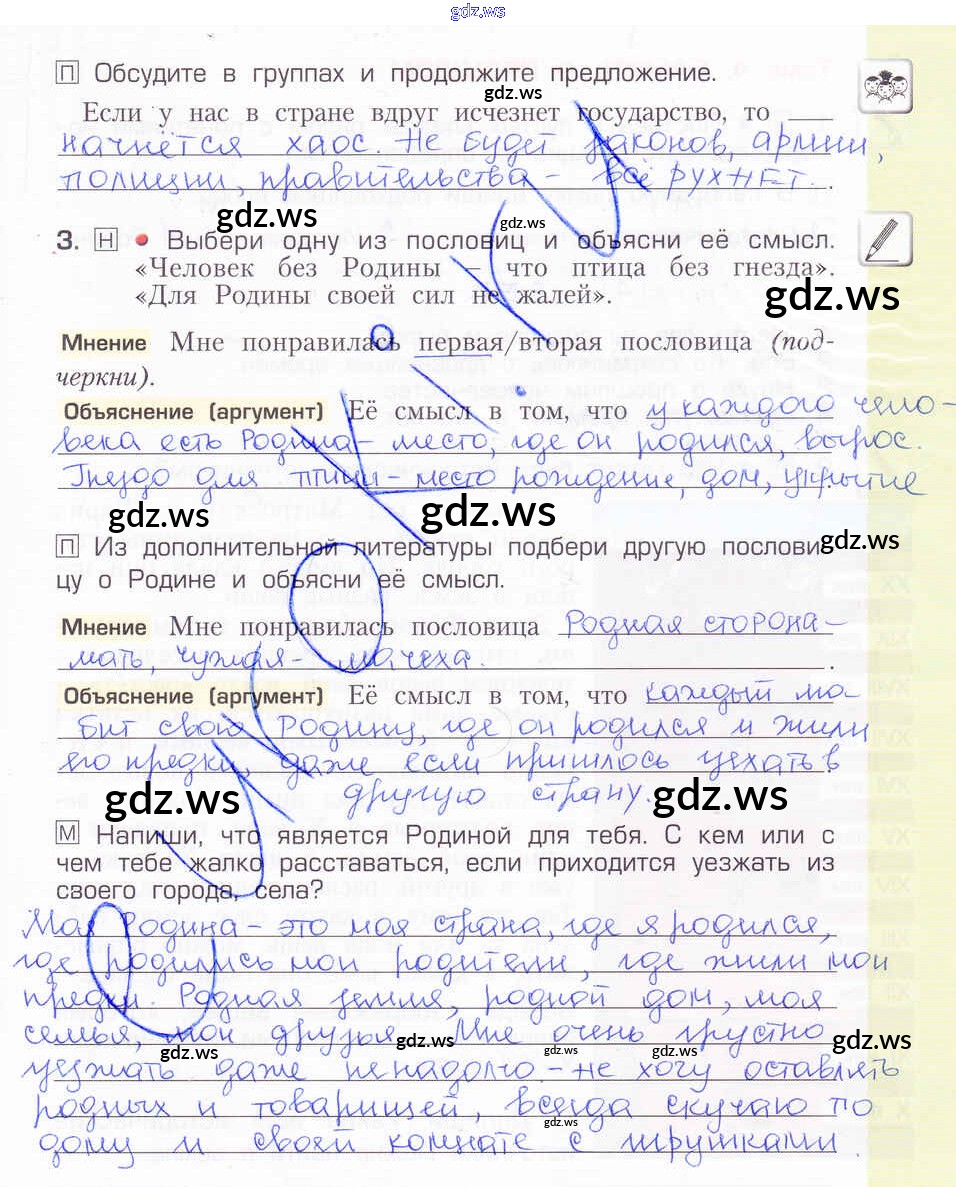 gdz.ws
П Обсудите в группах и продолжите предложение.
gdz.ws
Если у нас в стране вдруг исчезнет государство, то
начнётся хаос. Не будет законов, армии,
полиции, правительства – всё рухнет.
gdz.ws
3. Н • Выбери одну из пословиц и объясни её смысл.
«Человек без Родины – что птица без гнезда».
«Для Родины своей сил не жалей».
gdz.ws
Мнение Мне понравилась первая/вторая пословица (под-
черкни).
Объяснение (аргумент) Её смысл в том, что у каждого чело-
века есть Родина – место, где он родился, вырос.
Гнездо для птицы – место рождение, дом, укрытие
gdz.ws gdz.ws
П Из дополнительной литературы подбери другую послови-
gdz.ws
цу о Родине и объясни её смысл.
Мнение Мне понравилась пословица Родная сторона –
мать, чужая – мачеха.
Объяснение (аргумент) Её смысл в том, что каждый лю-
бит свою Родину, где он родился и жили
его предки, даже если пришлось уехать в
другую страну.
gdz.ws gdz.ws
М Напиши, что является Родиной для тебя. С кем или с
чем тебе жалко расставаться, если приходится уезжать из
своего города, села?
Моя Родина – это моя страна, где я родился,
где родились мои родители, где жили мои
предки. Родная земля, родной дом, моя
семья, мои друзья. Мне очень грустно
gdz.ws gdz.ws gdz.ws gdz.ws
уезжать даже ненадолго – не хочу оставлять
родных и товарищей, всегда скучаю по
gdz.ws
дому и своей комнате с игрушками.